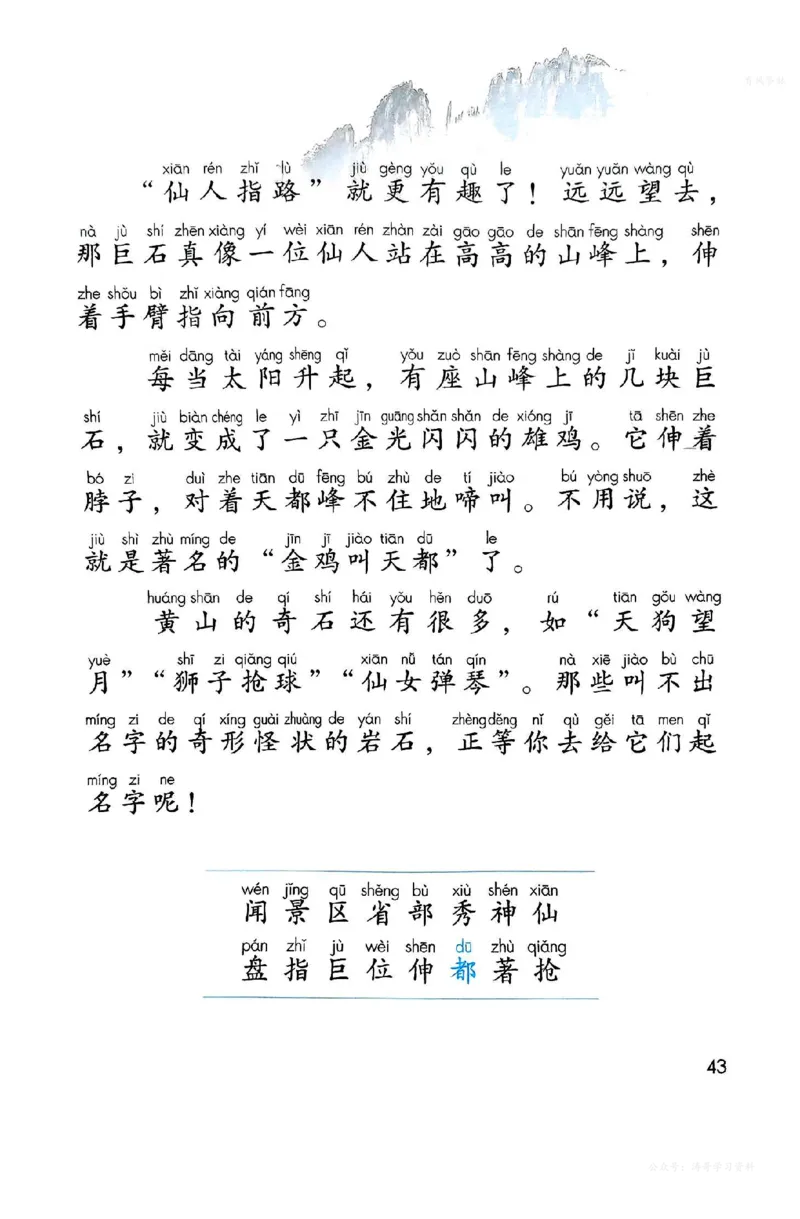 xiān rén zhǐ lù jiù gèng yǒu qù le yuǎn yuǎn wàng qù
“仙人指路”就更有趣了！远远望去，
nà jù shí zhēn xiàng yí wèi xiān rén zhàn zài gāo gāo de shān fēng shàng shēn
那巨石真像一位仙人站在高高的山峰上，伸
zhe shǒu bì zhǐ xiàng qián fāng
着手臂指向前方。
měi dāng tài yáng shēng qǐ yǒu zuò shān fēng shàng de jǐ kuài jù
每当太阳升起，有座山峰上的几块巨
shí jiù biàn chéng le yì zhī jīn guāng shǎn shǎn de xióng jī tā shēn zhe
石，就变成了一只金光闪闪的雄鸡。它伸着
bó zi duì zhe tiān dū fēng bú zhù de tí jiào bú yòng shuō zhè
脖子，对着天都峰不住地啼叫。不用说，这
jiù shì zhù míng de jīn jī jiào tiān dū le
就是著名的“金鸡叫天都”了。
huáng shān de qí shí hái yǒu hěn duō rú tiān gǒu wàng
黄山的奇石还有很多，如“天狗望
yuè shī zi qiǎng qiú xiān nǚ tán qín nà xiē jiào bù chū
月”“狮子抢球”“仙女弹琴”。那些叫不出
míng zi de qí xíng guài zhuàng de yán shí zhèng děng nǐ qù gěi tā men qǐ
名字的奇形怪状的岩石，正等你去给它们起
míng zi ne
名字呢！
wén jǐng qū shěng bù xiù shén xiān
闻景区省部秀神仙
pán zhǐ jù wèi shēn dū zhù qiǎng
盘指巨位伸都著抢
43
公众号：涛哥学习资料